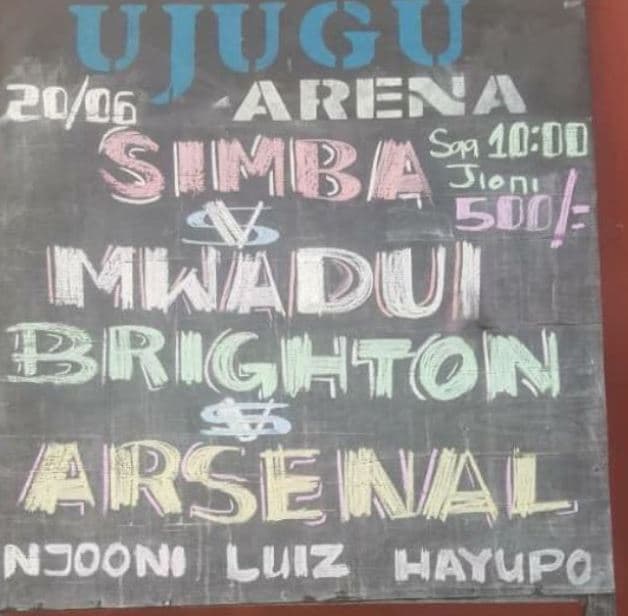 UJUGU
20/06 ARENA
SIMBA Saa 10:00
Jioni
VS 500/=
MWADUI
BRIGHTON
VS
ARSENAL
NJOONI LUIZ HAYUPO